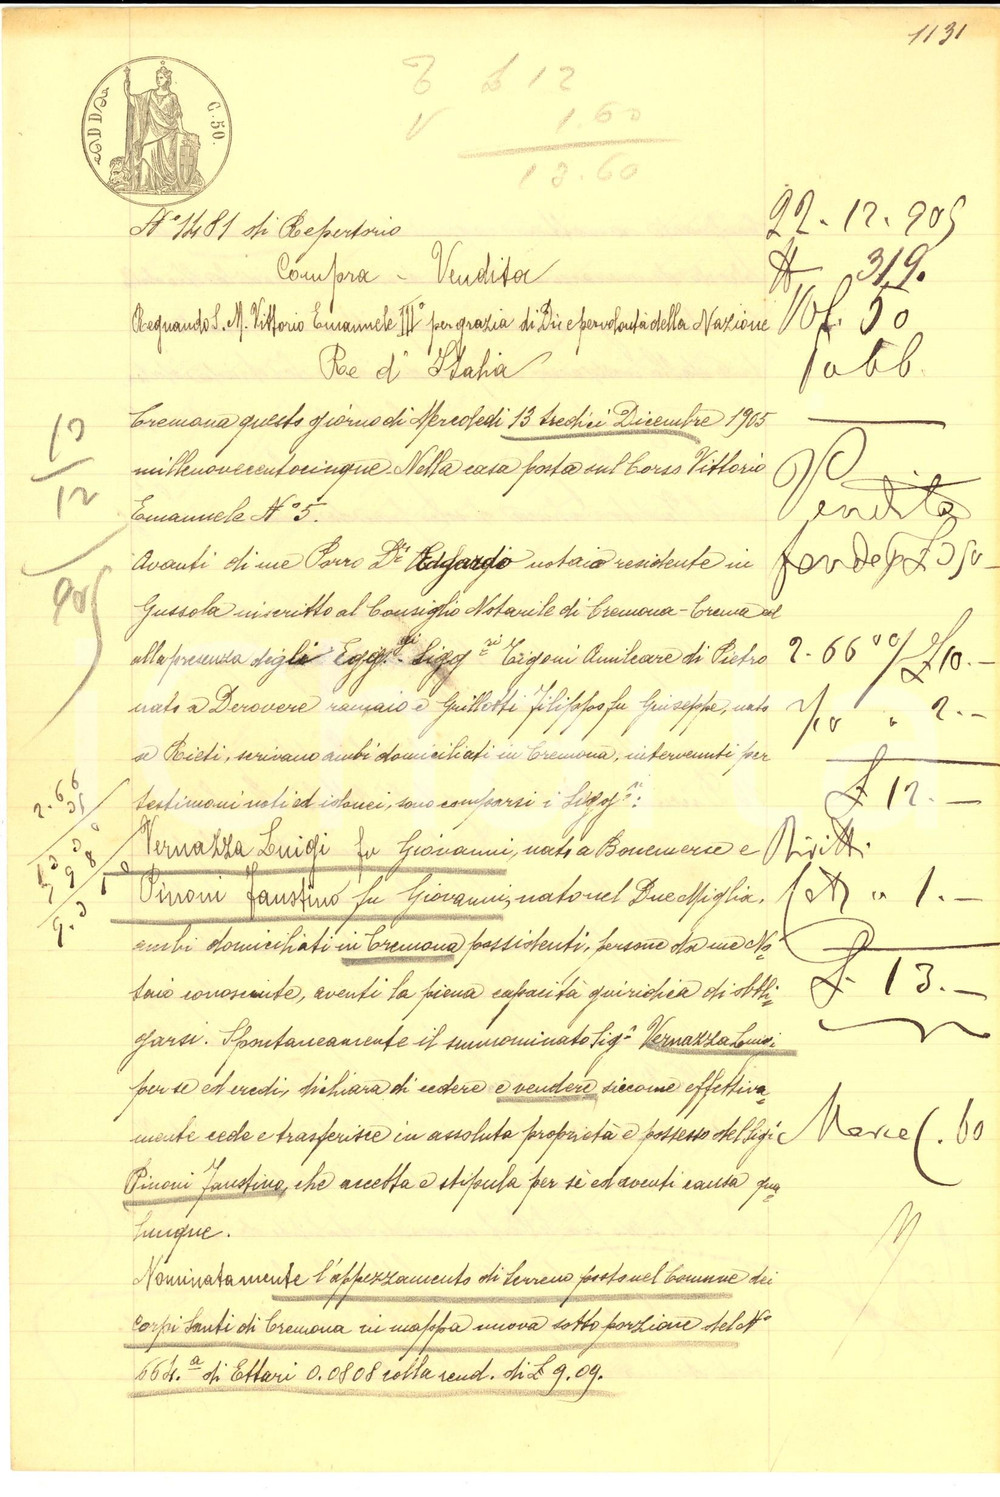 1131
D D
C. 50.
£ 12
1.60
13.60
N° 1481 di Repertorio
Compra - Vendita
Regnando S. M. Vittorio Emanuele III° per grazia di Dio e per volontà della Nazione
Re d'Italia
22-12-905
N 319.
Vol. 50
Pubb.
Cremona questo giorno di Mercoledì 13 tredici Dicembre 1905
millenovecentocinque. Nella casa posta sul Corso Vittorio
Emanuele N° 5.
13
12
905
Vendita
fondo £ 350-
Avanti di me Porro Dr. Edgardo notaio residente in
Gussola inscritto al Consiglio Notarile di Cremona-Crema ed
alla presenza degli Egg. Sigg.ri Trigoni Amilcare di Pietro
nato a Derovere ramaio e Grillotti Filippo fu Giuseppe, nato
a Rieti, scrivano ambi domiciliati in Cremona, intervenuti per
testimoni noti ed idonei, sono comparsi i Sigg.ri:
2.66 % £ 10.-
" 2.-
£ 12.-
Diritti
" 1.-
£ 13.-
2.66
35
Vernazza Luigi fu Giovanni, nato a Bonemerse e
Pinoni Faustino fu Giovanni, nato nel Due Miglia,
ambi domiciliati in Cremona possidenti, persone da me No=
taio conosciute, aventi la piena capacità giuridica di obbli=
garsi. Spontaneamente il summominato Sig.r Vernazza Luigi
per sè ed eredi, dichiara di cedere e vendere siccome effettiva=
mente cede e trasferisce in assoluta proprietà e possesso del Sig.r
Pinoni Faustino, che accetta e stipula per sè ed aventi causa qua=
lunque.
Marce . 60
Nominatamente l'appezzamento di terreno posto nel Comune dei
Corpi Santi di Cremona in mappa nuova sotto porzione del N°
664.a di Ettari 0.0808 colla rend. di £ 9.09.